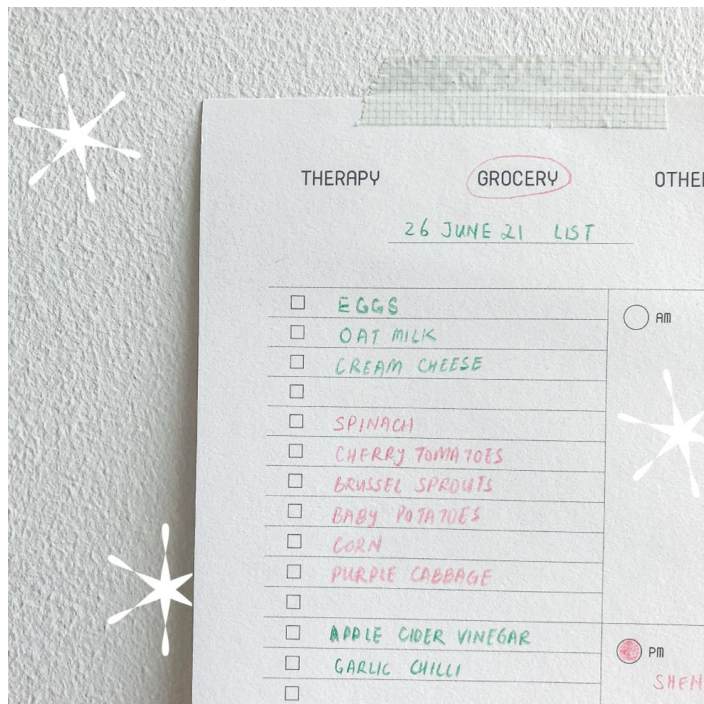 THERAPY GROCERY
26 JUNE 21 LIST
EGGS
AM
OAT MILK
CREAM CHEESE
SPINACH
CHERRY TOMATOES
BRUSSEL SPROUTS
BABY POTATOES
CORN
PURPLE CABBAGE
APPLE CIDER VINEGAR
PM
GARLIC CHILLI